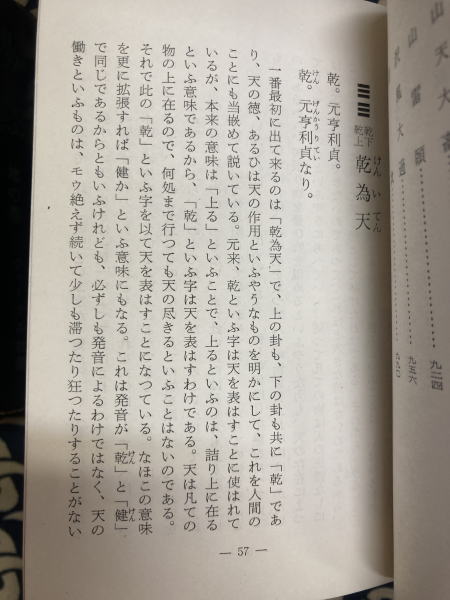 山天大畜
山雷頤
沢風大過
九二四
九五六
乾下
乾上
乾為天
けんゐてん
乾。元亨利貞。
乾。元亨利貞なり。
けん げんかうりてい
一番最初に出て来るのは「乾為天」で、上の卦も、下の卦も共に「乾」であ
り、天の徳、あるひは天の作用といふやうなものを明かにして、これを人間の
ことにも当嵌めて説いている。元来、乾といふ字は天を表はすことに使はれて
いるが、本来の意味は「上る」といふことで、上るといふのは、詰り上に在る
といふ意味であるから、「乾」といふ字は天を表はすわけである。天は凡ての
物の上に在るので、何処まで行つても天の尽きるといふことはないのである。
それで此の「乾」といふ字を以て天を表はすことになつている。なほこの意味
を更に拡張すれば「健か」といふ意味にもなる。これは発音が「乾」と「健」、
けん けん
で同じであるからともいふけれども、必ずしも発音によるわけではなく、天の
働きといふものは、モウ絶えず続いて少しも滞つたり狂つたりすることがない
— 57 —